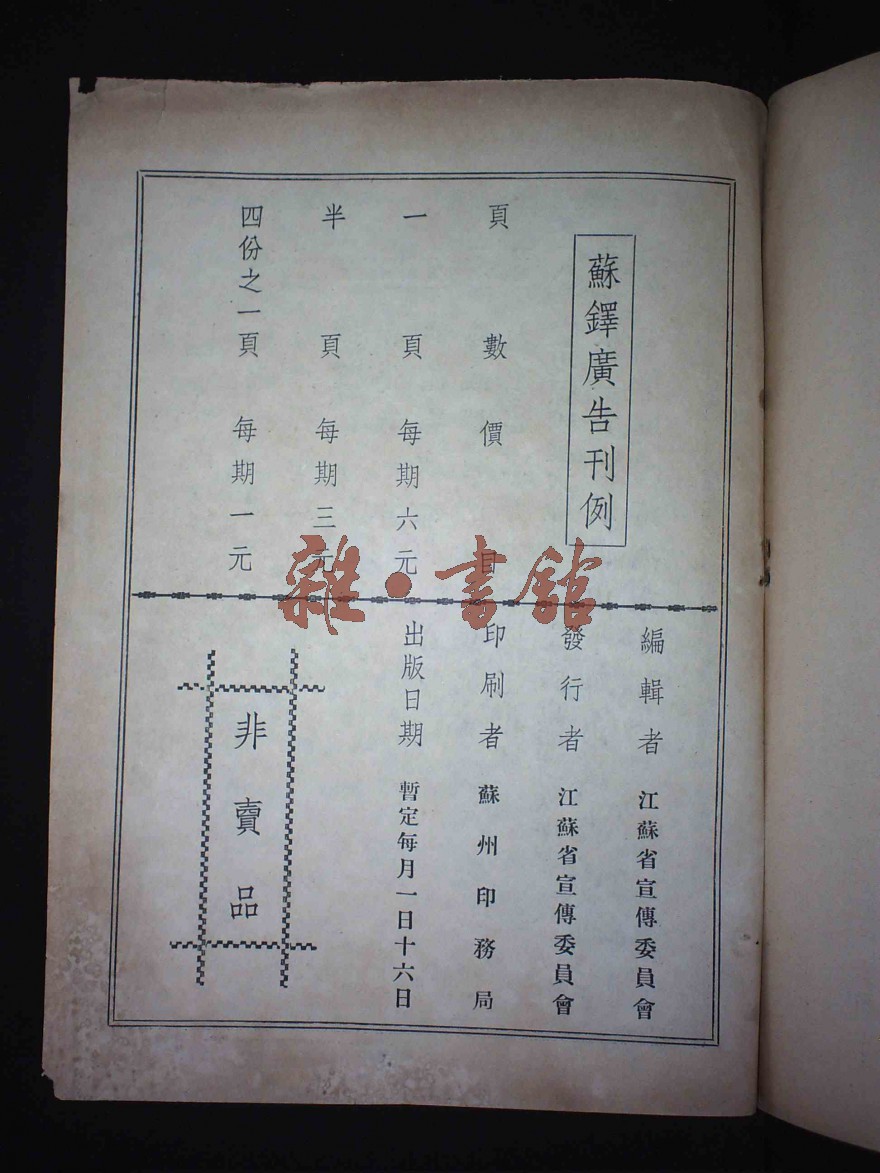 蘇鐸廣告刊例
頁數價目
一頁每期六元
半頁每期三元
四份之一頁每期一元
編輯者 江蘇省宣傳委員會
發行者 江蘇省宣傳委員會
印刷者 蘇州印務局
出版日期 暫定每月一日十六日
非賣品
雜·書館